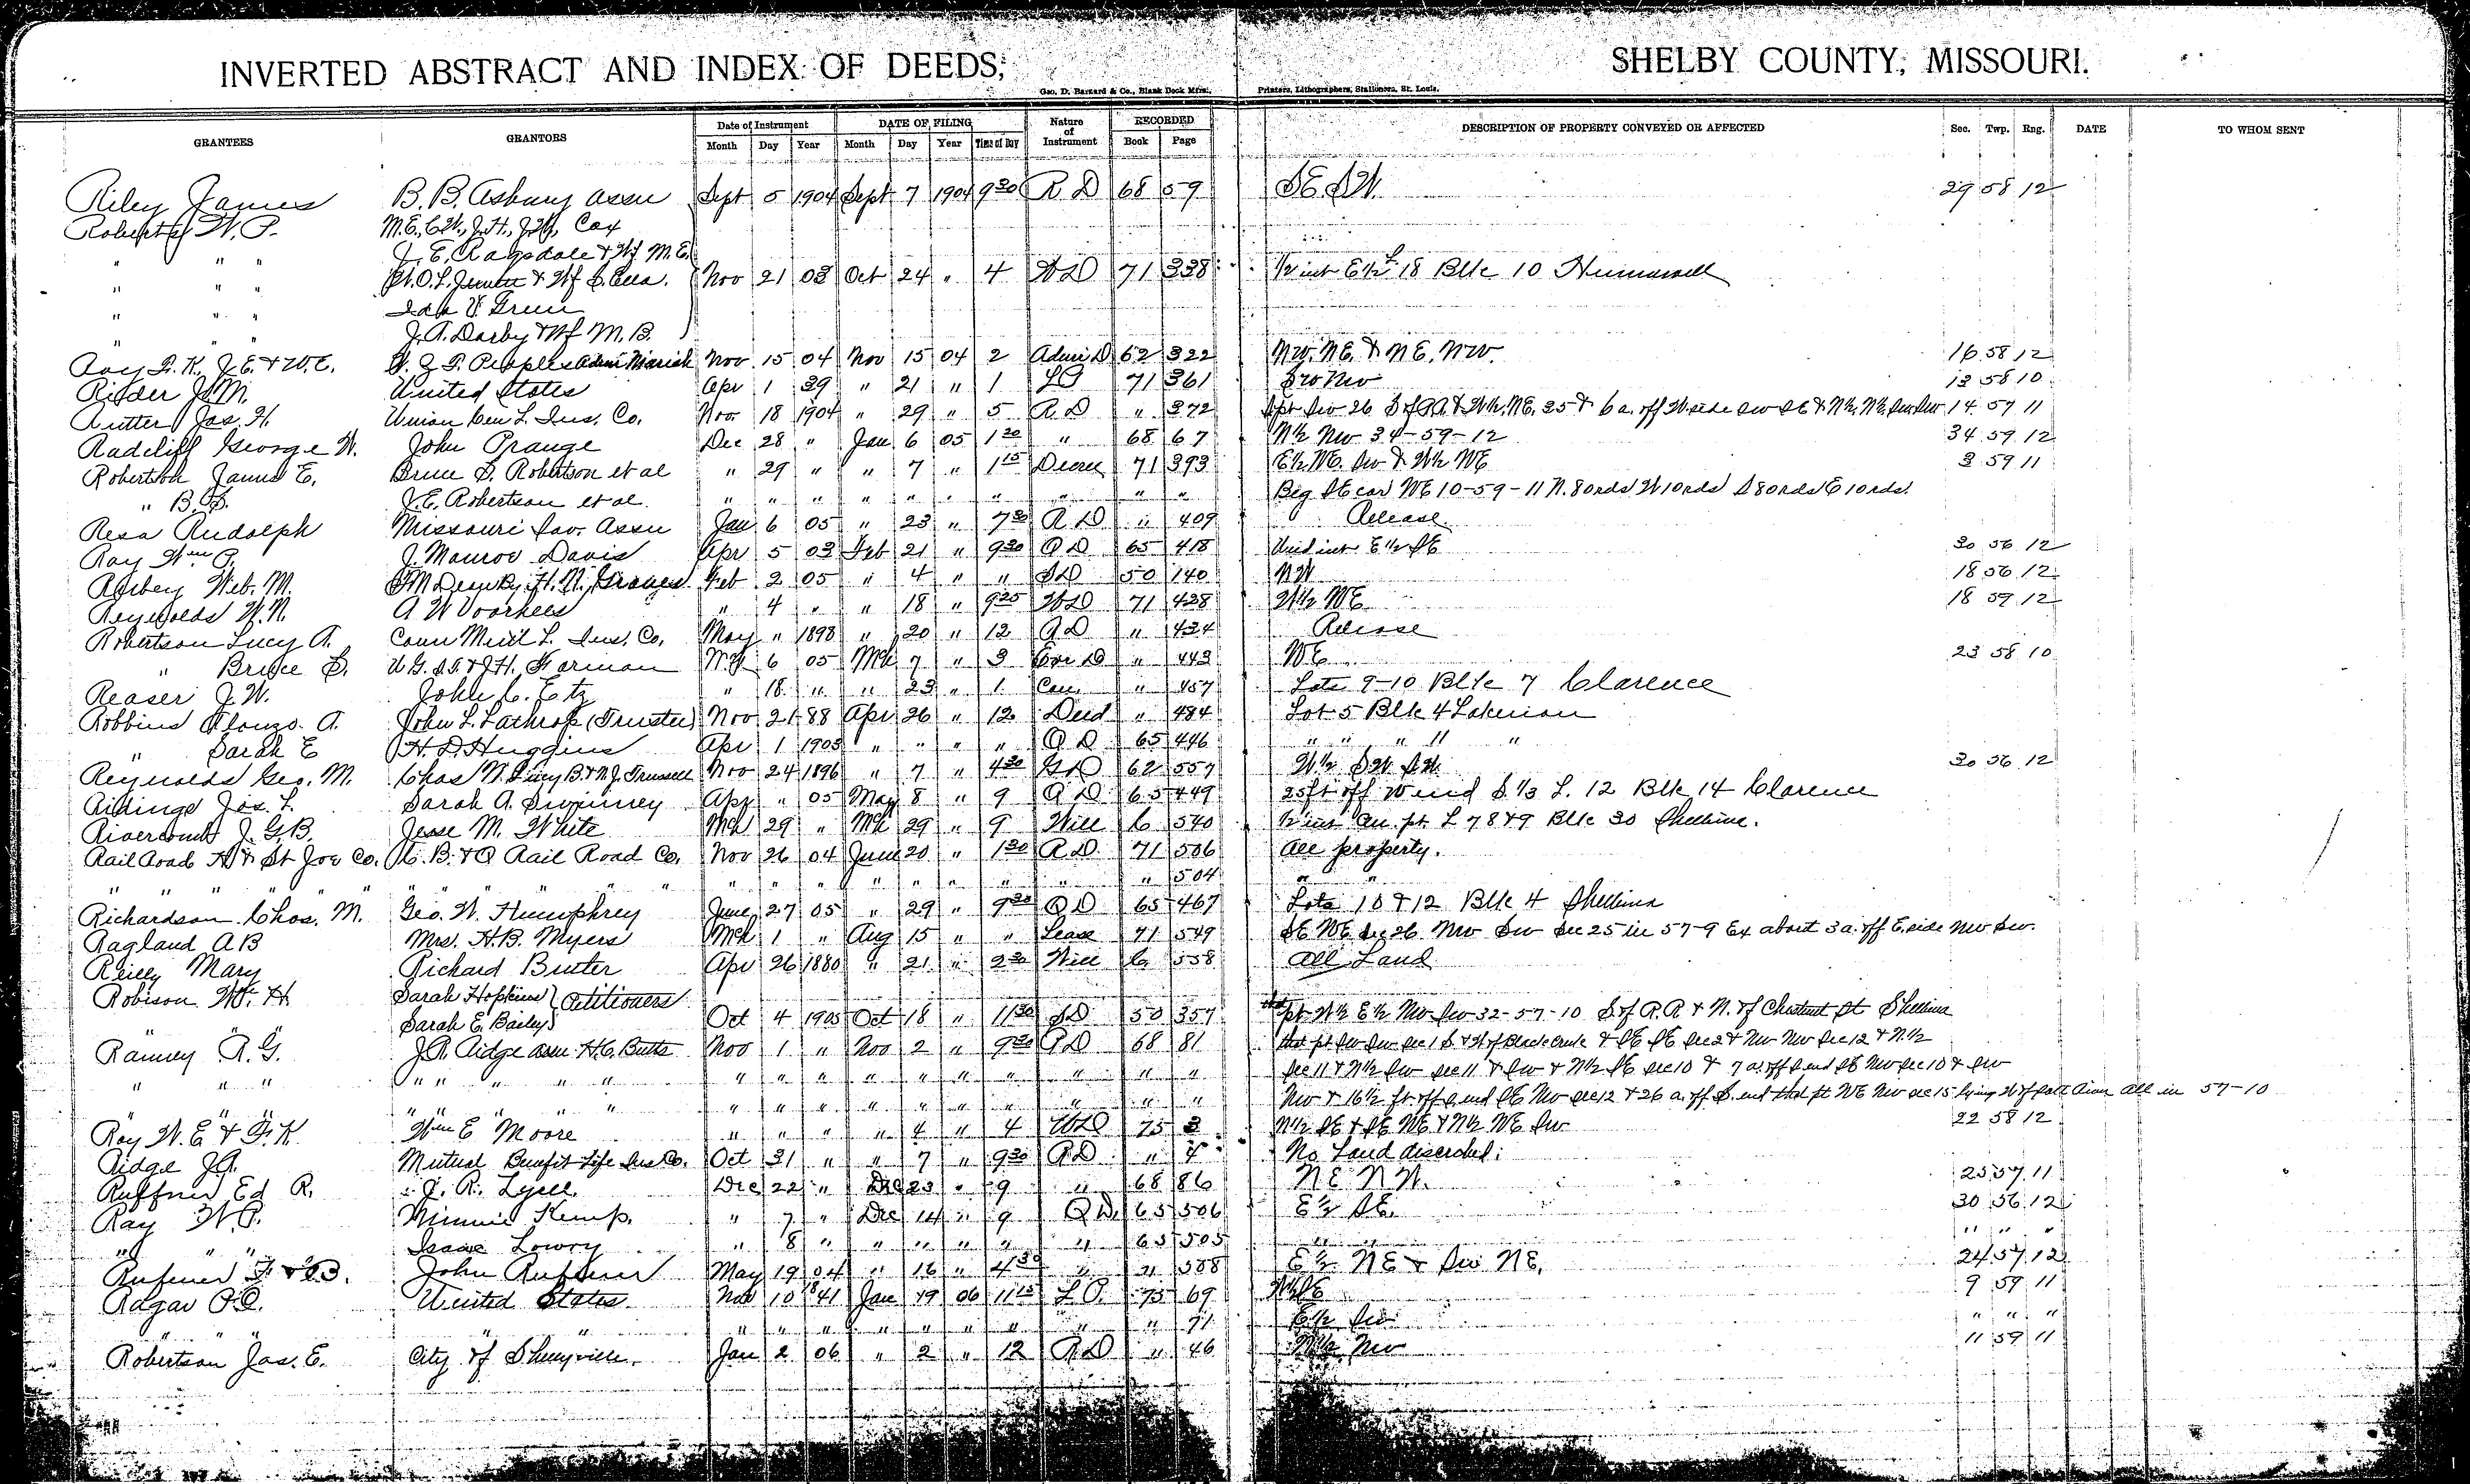 INVERTED ABSTRACT AND INDEX OF DEEDS, SHELBY COUNTY, MISSOURI.
Geo. D. Barnard & Co., Blank Book Mfrs., Printers, Lithographers, Stationers, St. Louis.
GRANTEES GRANTORS Date of Instrument DATE OF FILING Nature of Instrument RECORDED DESCRIPTION OF PROPERTY CONVEYED OR AFFECTED Sec. Twp. Rng. DATE TO WHOM SENT
Month Day Year Month Day Year Time of Day Book Page
Riley James B. B. Asbury assn Sept 5 1904 Sept 7 1904 9 30 R D 68 59 SE SW. 29 58 12
Roberts W. P. M.E., C.W., J.H., J.W. Cox
" " " J. E. Ragsdale & Wf M. E.
" " " W. O. L. Jewett & Wf Nov 21 03 Oct 24 " 4 W D 71 338 1/2 int E 1/2 L 18 Blk 10 Hunnewell
" " " Ida V. Green
" " " J. A. Darby & Wf M. B.
Ray F. K., J. E. & W. E. Peoples Adm Nov 15 04 Nov 15 04 2 Admr D 62 322 NW. NE. & NE. NW. 16 58 12
Rider J. M. United States Apr 1 39 " 21 " 1 71 361 SW NW 13 58 10
Rutter Jas. H. Union Cen L. Ins. Co. Nov. 18 1904 " 29 " 5 R. D " 372 14 57 11
Radcliff George W. John Prange Dec 28 " Jan 6 05 1 30 " 68 67 N 1/2 NW 34-59-12 34 59 12
Robertson James E. Bruce S. Robertson et al " 29 " " 7 " 1 15 Decree 71 393 E 1/2 NE. SW & W 1/2 NE 3 59 11
" B. S. J. E. Robertson et al. " " " " " " " " " " Beg SE cor NE 10-59-11 N. 80 rds W 10 rds S 80 rds E 10 rds.
Resa Rudolph Missouri Sav. Assn Jan 6 05 " 23 " 7 30 R D " 409 Release
Ray Wm P. J. Monroe Davis Apr 5 03 Feb 21 " 9 30 Q D 65 418 Und int E 1/2 SE 30 56 12
Web. M. H. N. Graves Feb 2 05 " 4 " " S D 50 140 NW 18 56 12
Reynolds W. N. A W Voorhees " 4 " " 18 " 9 25 W D 71 428 W 1/2 NE 18 59 12
Robertson Lucy A. Conn Mut'l L. Ins. Co. May " 1898 " 20 " 12 R D " 434 Release
" Bruce S. U G. S. F. & J. H. Forman Mch 6 05 Mch 7 " 3 " 443 NE 23 58 10
Reaser J. W. John C. Etz " 18 " " 23 " 1 Con. " 457 Lots 9-10 Blk 7 Clarence
Robbins Alonzo A. John L. Lathrop (Trustee) Nov 21 88 Apr 26 " 12 Deed " 484 Lot 5 Blk 4 Lakenan
" Sarah E H. D. Huggins Apr 1 1903 " " " " Q D 65 446 " " " " "
Reynolds Geo. M. Chas W. Lucy B. & N. J. Trussell Nov 24 1896 " 7 " 4 30 W D 62 557 W 1/2 SW SW. 30 56 12
Ridings Jas. L. Sarah A. Swinney Apr " 05 May 8 " 9 Q D 65 449 25 ft off W end S. 1/3 L. 12 Blk 14 Clarence
Rivercomb J. G. B. Jesse M. White Mch 29 " Mch 29 " 9 Will 6 540 1/2 int pt L 7 8 & 9 Blk 30 Shelbina.
Rail Road H & St Joe Co. C. B. & Q Rail Road Co. Nov 26 04 June 20 " 1 30 R D 71 506 All property.
" " " " " " " " " " " " " " " " " " " " " 504 " "
Richardson Chas. M. Geo. W. Humphrey June 27 05 " 29 " 9 30 Q D 65 467 Lots 10 & 12 Blk 4 Shelbina
Ragland A B Mrs. H. B. Myers Mch 1 " Aug 15 " " Lease 71 549 SE NE sec 26 NW SW sec 25 in 57-9 Ex about 3 a. off E. side NW SW.
Reilly Mary Richard Buster Apr 26 1880 " 21 " 2 30 Will 6 558 All Land
Robison Wm H Sarah Hopkins } Petitioners
Sarah E. Bailey Oct 4 1905 Oct 18 " 11 30 S D 50 357 that pt W 1/2 E 1/2 NW SW 32-57-10 S of R. R & N. of Chestnut St Shelbina
Ramey R. G. J. R. Ridge assn H. C. Butts Nov 1 " Nov 2 " 9 30 R D 68 81 that pt SW SW sec 1 S & W of Black Creek & SE SE sec 2 & NW NW sec 12 & N. 1/2
" " " " " " " " " " " " " " " " " " sec 11 & N 1/2 SW sec 11 & SW & N 1/2 SE sec 10 & 7 a. off S end SE NW sec 10 & SW
" " " " " " " " " " " " " " " " " " NW & 16 1/2 ft off S end SE NW sec 12 & 26 a. off S. end that pt NE NW sec 15 lying W of Salt River all in 57-10
Ray W. E & F. K Wm E Moore " " " " 4 " 4 W D 75 3 N 1/2 SE & SE NE & N 1/2 NE SW 22 58 12
Ridge J R. Mutual Benefit Life Ins Co. Oct 31 " " 7 " 9 30 R D " 4 No Land described.
Ruffner Ed R. J. R. Lyell. Dec 22 " Dec 23 " 9 " 68 86 NE NW. 25 57 11
Ray W. P. Minnie Kemp. " 7 " Dec 14 " 9 Q D. 65 506 E 1/2 SE. 30 56 12
" " " Isaac Lowry " 8 " " " " " " 65 505 " " " " "
F & B. John May 19 04 " 16 " 4 30 " 71 588 E 1/2 NE & SW NE. 24 57 12
United States Nov 10 1841 Jan 19 06 11 15 75 69 9 59 11
" " " " " " " " " " " " " " 71 E 1/2 SW " " "
Robertson Jas. E. City of Shelbyville. Jan 2 06 " 2 " 12 R D " 46 NW 11 59 11